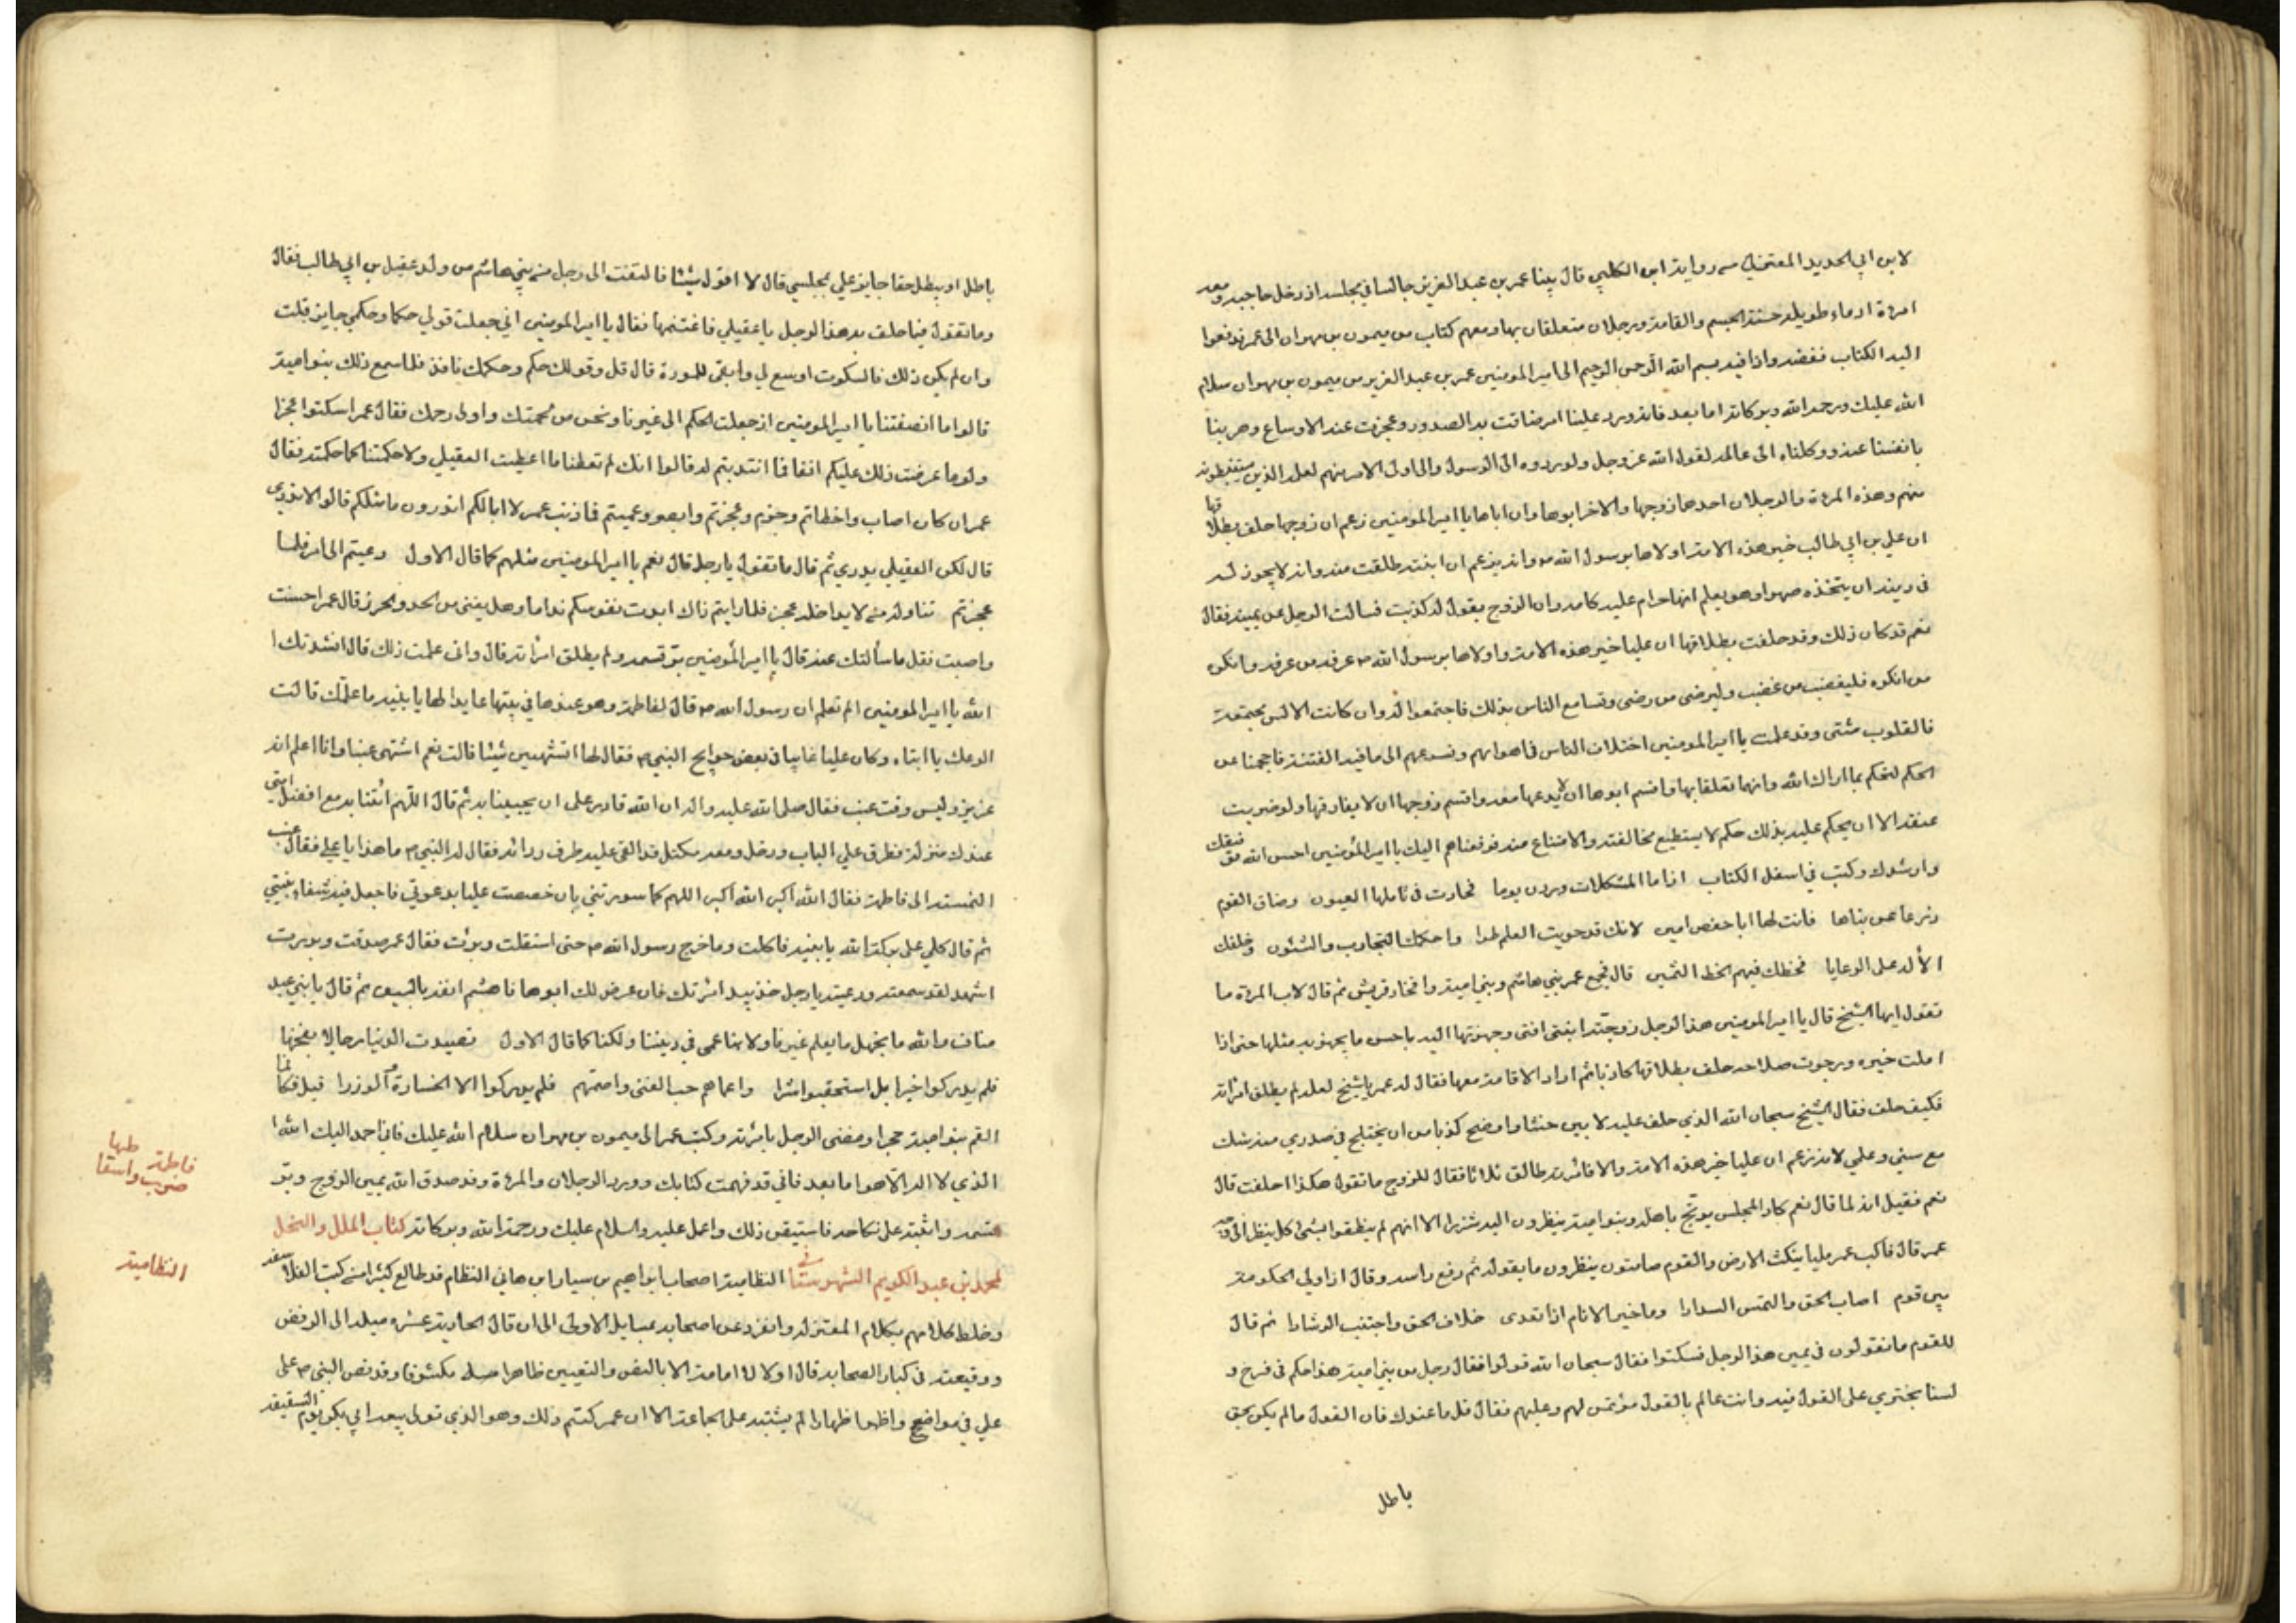 لابن ابي الحديد المعتزلي من رواية ابن الكلبي قال بينا عمر بن عبد العزيز جالسا في مجلسه اذ دخل حاجبه ومعه
امرءة ادماء طويلة حسنة الجسم والقامة ورجلان متعلقان بها ومعهم كتاب من ميمون بن مهران الى عمر فدفعوا
اليه الكتاب ففضه واذا فيه بسم الله الرحمن الرحيم الى امير المومنين عمر بن عبد العزيز من ميمون بن مهران سلام
الله عليك ورحمة الله وبركاته اما بعد فانه ورد علينا امر ضاقت به الصدور وعجزت عنه الاوساع وهربنا
بانفسنا عنه ووكلناه الى عالمه لقول الله عز وجل ولو ردوه الى الرسول والى اولى الامر منهم لعلمه الذين يستنبطونه
منهم وهذه المرءة والرجلان احدهما زوجها والاخر ابوها وان اباها يا امير المومنين زعم ان زوجها حلف بطلاقها
ان علي بن ابي طالب خير هذه الامة واولاها برسول الله ص وانه يزعم ان ابنته طلقت منه وانه لا يجوز له
في دينه ان يتخذه صهرا وهو يعلم انها حرام عليه كامه وان الزوج يقول له كذبت فسالت الرجل عن يمينه فقال
نعم قد كان ذلك وقد حلفت بطلاقها ان عليا خير هذه الامة واولاها برسول الله ص عرفه من عرفه وانكره
من انكره فليغضب من غضب وليرضى من رضى وتسامع الناس بذلك فاجتمعوا له وان كانت الالسن مجتمعة
فالقلوب شتى وقد علمت يا امير المومنين اختلاف الناس في اهوائهم وتسرعهم الى ما فيه الفتنة فاحجمنا عن
الحكم لتحكم بما اراك الله وانهما تعلقا بها واقسم ابوها ان لا يدعها معه واقسم زوجها ان لا يفارقها ولو ضربت
عنقه الا ان يحكم عليه بذلك حكم لا يستطيع مخالفته والامتناع منه فرفعناهم اليك يا امير المؤمنين احسن الله توفيقك
وارشدك وكتب في اسفل الكتاب اذا ما المشكلات وردن يوما فحارت في تاملها العيون وضاق القوم
ذرعا عن بناها فانت لها ابا حفص امين لانك قد حويت العلم طرا واحكمك التجارب والشئون وخلفك
الاله على الرعايا فحظك فيهم الحظ الثمين قال فجمع عمر بني هاشم وبني امية وافخاذ قريش ثم قال لاب المرءة ما
تقول ايها الشيخ قال يا امير المومنين هذا الرجل زوجته ابنتي وجهزتها اليه باحسن ما يجهز به مثلها حتى اذا
املت خيره ورجوت صلاحه حلف بطلاقها كاذبا ثم اراد الاقامة معها فقال له عمر يا شيخ لعله لم يطلق امراته
فكيف حلف فقال الشيخ سبحان الله الذي حلف عليه لابين حنثا واوضح كذبا من ان يختلج في صدري منه شك
مع سني وعلمي لانه زعم ان عليا خير هذه الامة والا فامرئته طالق ثلاثا فقال للزوج ما تقول هكذا احلفت قال
نعم فقيل انه لما قال نعم كاد المجلس يرتج باهله وبنو امية ينظرون اليه شزرا الا انهم لم ينطقوا بشئ كل ينظر الى وجه
عمر قال فاكب عمر مليا ينكت الارض والقوم صامتون ينظرون ما يقوله ثم رفع راسه وقال اذا ولي الحكومة
بين قوم اصاب الحق والتمس السدادا وما خير الانام اذا تعدى خلاف الحق واجتنب الرشادا ثم قال
للقوم ما تقولون في يمين هذا الرجل فسكتوا فقال سبحان الله قولوا فقال رجل من بني امية هذا حكم في فرج و
لسنا نجترئ على القول فيه وانت عالم بالقول مؤتمن لهم وعليهم فقال قل ما عندك فان القول ما لم يكن يحق
باطل
باطلا او يبطل حقا جايز علي بمجلسي قال لا اقول شيئا فالتفت الى رجل من بني هاشم من ولد عقيل بن ابي طالب فقال
وما تقول فيما حلف به هذا الرجل يا عقيلي فاغتنمها فقال يا امير المومنين اني جعلت قولي حكما وحكمي جايزا قلت
وان لم يكن ذلك فالسكوت اوسع لي وابقى للمودة قال قل وقولك حكم وحكمك نافذ فلما سمع ذلك بنو امية
قالوا ما انصفتنا يا امير المومنين اذ جعلت الحكم الى غيرنا ونحن من لحمتك واولى رحمك فقال عمر اسكتوا عجزا
ولؤما عرضت ذلك عليكم انفا فما انتدبتم له قالوا انك لم تعطنا ما اعطيت العقيلي ولا حكمتنا كما حكمته فقال
عمر ان كان اصاب واخطاتم وحزم وعجزتم وابصر وعميتم فما ذنب عمر لا ابا لكم اتدرون ما مثلكم قالوا لا ندري
قال لكن العقيلي يدري ثم قال ما تقول يا رجل قال نعم يا امير المومنين مثلهم كما قال الاول دعيتم الى امر فلما
عجزتم تناوله من لا يداخله عجز فلما رايتم ذاك ابدت نفوسكم نداما وهل يغني من الحدر الحرز قال عمر احسنت
واصبت فقل ما سألتك عنه قال يا امير المؤمنين بر قسمه ولم يطلق امراته قال وانى علمت ذلك قال انشدتك ا
الله يا امير المومنين الم تعلم ان رسول الله ص قال لفاطمة وهو عندها في بيتها عايدا لها يا بنية ما علتك قالت
الوعك يا ابتاه وكان عليا غايبا في بعض حوايج النبي ص فقال لها اتشتهين شيئا قالت نعم اشتهى عنبا وانا اعلم انه
عزيز وليس وقت عنب فقال صلى الله عليه واله ان الله قادر على ان يجيبنا به ثم قال اللهم ائتنا به مع افضل امتي
عندك منزلة فطرق علي الباب ودخل ومعه مكتل قد القى عليه طرف ردائه فقال له النبي ص ما هذا يا علي فقال عنب
التمسته الى فاطمة فقال الله اكبر الله اكبر اللهم كما سررتني بان خصصت عليا بدعوتي فاجعل فيه شفاء بنيتي
ثم قال كلي على بركة الله يا بنية فاكلت وما خرج رسول الله ص حتى استقلت وبرئت فقال عمر صدقت وبررت
اشهد لقد سمعته ووعيته يا رجل خذ بيد امرئتك فان عرض لك ابوها فاهشم انفه بالسيف ثم قال يا بني عبد
مناف والله ما نجهل ما يعلم غيرنا ولا بنا عمى في ديننا ولكنا كما قال الاول تصيدت الدنيا رجالا بفخها
فلم يدركوا خيرا بل استحقبوا شرا واعماهم حب الغنى واصمهم فلم يدركوا الا الخسارة والوزرا قيل فكانما
القم بنو امية حجرا ومضى الرجل بامرئته وكتب عمر الى ميمون بن مهران سلام الله عليك فاني احمد اليك الله ا
الذي لا اله الا هو اما بعد فاني قد فهمت كتابك وورد الرجلان والمرءة وقد صدق الله يمين الزوج وبر
قسمه واثبته على نكاحه فاستيقن ذلك واعمل عليه والسلام عليك ورحمة الله وبركاته كتاب الملل والنحل
لمحمد بن عبد الكريم الشهرستاني النظامية اصحاب ابراهيم بن سيار ابن هاني النظام قد طالع كثيرا من كتب الفلاسفه
وخلط كلامهم بكلام المعتزلة وانفرد عن اصحابه بمسايل الاولى الى ان قال الحادية عشره ميله الى الرفض
ووقيعته في كبار الصحابه قال اولا لا امامة الا بالنص والتعيين ظاهرا مكشوفا وقد نص النبي ص على
علي في مواضع واظهر اظهارا لم يشتبه على الجماعة الا ان عمر كتم ذلك وهو الذي تولى بيعة ابي بكر يوم السقيفه
فاطمة
النظامية